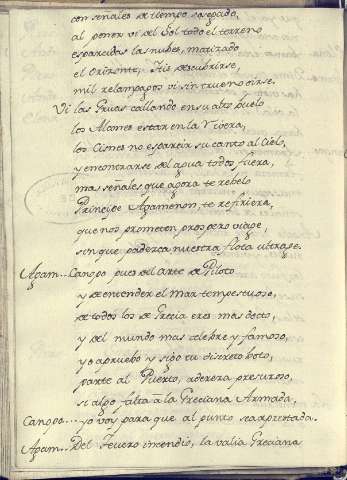 con señales de tiempo sosegado,
al poner vi del Sol todo el terreno
esparcidas las nubes, matizado
el Orizonte, Iris descubrirse,
mil relampagos vi sin trueno oirse.
Vi las Gruas callando en su alto buelo
los Alciones estar en la Rivera,
los Cisnes no esparcir su canto al Cielo,
y encontrarse del agua todos fuera,
mas señales que agora te rebelo
Principe Agamenon, te refiriera,
que nos prometen prospero viage,
sin que padezca nuestra flota ultrage.
Agam... Canopo pues del arte de Piloto
y de entender el mar tempestuoso,
de todos los de Grecia eres mas docto,
y del mundo mas celebre y famoso,
yo apruebo y sigo tu discreto boto,
parte al Puerto, adereza presuroso,
si algo falta a la Greciana Armada,
Canopo... yo voy para que al punto sea aprestada.
Agam... Del fevero incendio, la valia Greciana